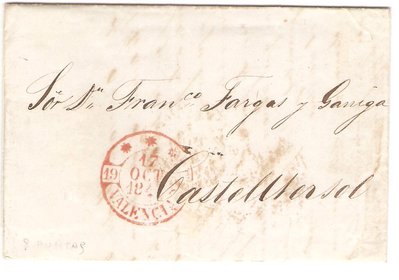 Sor Dn Franco Fargas y Ganiga
17
OCT
184
19
VALENCIA
Castelltersol
8 PUNTAS